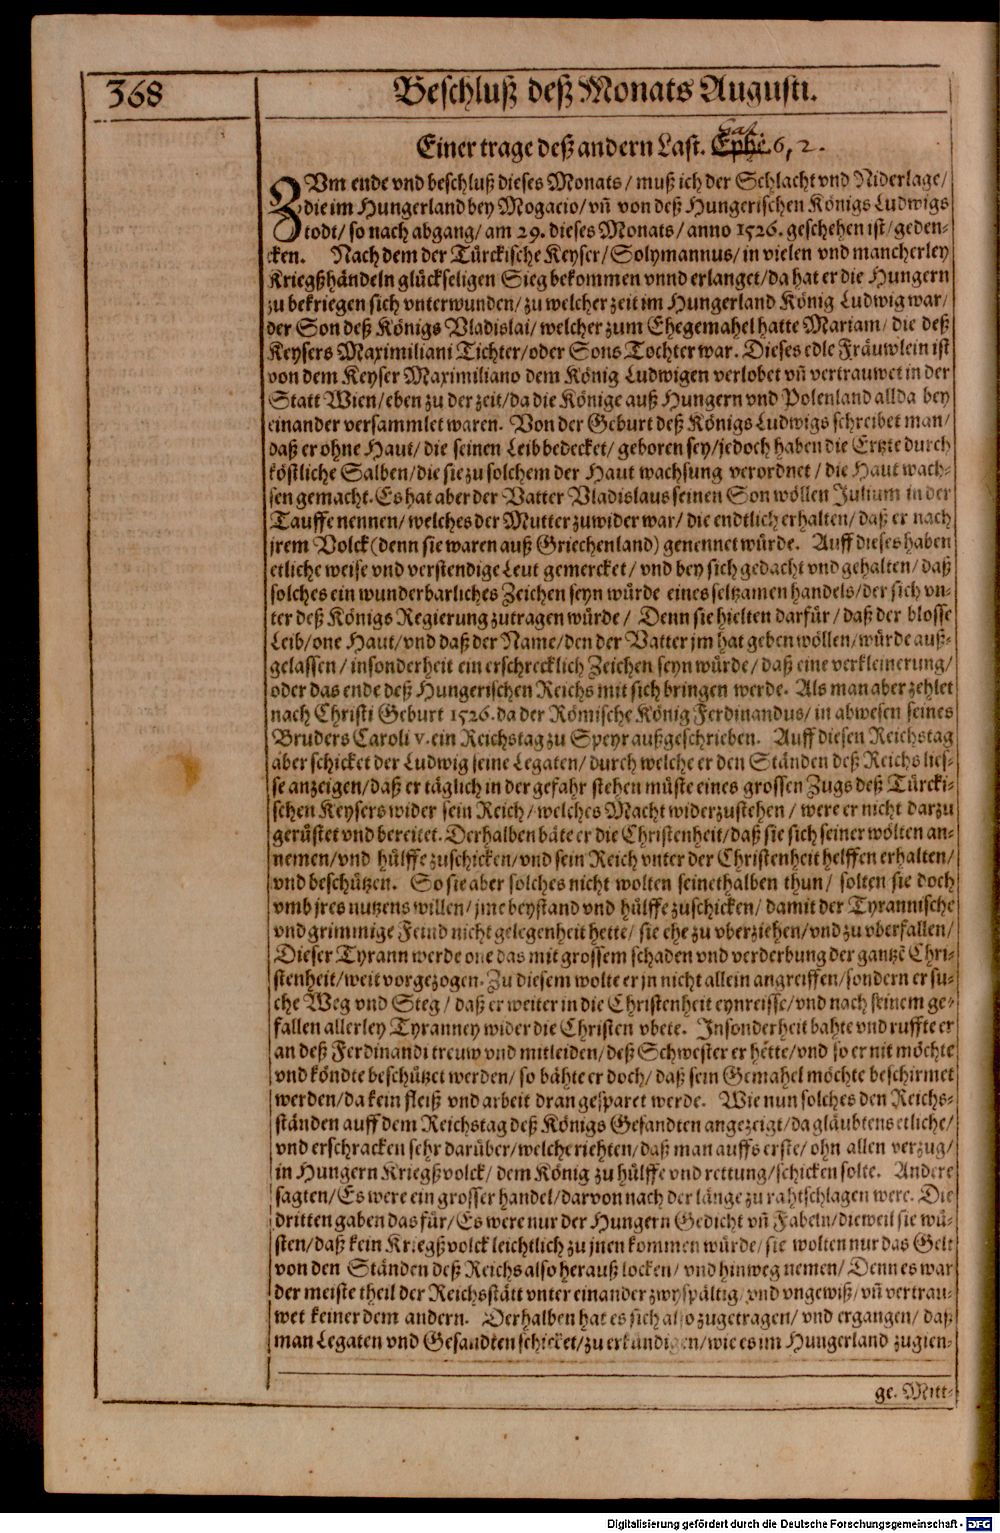 368
Beschluß deß Monats Augusti.
Einer trage deß andern Last. Ephe. 6, 2.
Gal
ZVm ende vnd beschluß dieses Monats / muß ich der Schlacht vnd Niderlage /
die im Hungerland bey Mogacio / vñ von deß Hungerischen Königs Ludwigs
todt / so nach abgang / am 29. dieses Monats / anno 1526. geschehen ist / geden-
cken. Nach dem der Türckische Keyser / Solymannus / in vielen vnd mancherley
Kriegßhändeln glückseligen Sieg bekommen vnnd erlanget / da hat er die Hungern
zu bekriegen sich vnterwunden / zu welcher zeit im Hungerland König Ludwig war /
der Son deß Königs Vladislai / welcher zum Ehegemahel hatte Mariam / die deß
Keysers Maximiliani Tichter / oder Sons Tochter war. Dieses edle Fräuwlein ist
von dem Keyser Maximiliano dem König Ludwigen verlobet vñ vertrauwet in der
Statt Wien / eben zu der zeit / da die Könige auß Hungern vnd Polenland allda bey
einander versammlet waren. Von der Geburt deß Königs Ludwigs schreibet man /
daß er ohne Haut / die seinen Leib bedecket / geboren sey / jedoch haben die Ertzte durch
köstliche Salben / die sie zu solchem der Haut wachsung verordnet / die Haut wach-
sen gemacht. Es hat aber der Vatter Vladislaus seinen Son wöllen Julium in der
Tauffe nennen / welches der Mutter zuwider war / die endtlich erhalten / daß er nach
jrem Volck (denn sie waren auß Griechenland) genennet würde. Auff dieses haben
etliche weise vnd verstendige Leut gemercket / vnd bey sich gedacht vnd gehalten / daß
solches ein wunderbarliches Zeichen seyn würde eines seltzamen handels / der sich vn-
ter deß Königs Regierung zutragen würde / Denn sie hielten darfür / daß der blosse
Leib / one Haut / vnd daß der Name / den der Vatter jm hat geben wöllen / würde auß-
gelassen / insonderheit ein erschrecklich Zeichen seyn würde / daß eine verkleinerung /
oder das ende deß Hungerischen Reichs mit sich bringen werde. Als man aber zehlet
nach Christi Geburt 1526. da der Römische König Ferdinandus / in abwesen seines
Bruders Caroli v. ein Reichstag zu Speyr außgeschrieben. Auff diesen Reichstag
aber schicket der Ludwig seine Legaten / durch welche er den Ständen deß Reichs lies-
se anzeigen / daß er täglich in der gefahr stehen müste eines grossen Zugs deß Türcki-
schen Keysers wider sein Reich / welches Macht widerzustehen / were er nicht darzu
gerüstet vnd bereitet. Derhalben bäte er die Christenheit / daß sie sich seiner wölten an-
nemen / vnd hülffe zuschicken / vnd sein Reich vnter der Christenheit helffen erhalten /
vnd beschützen. So sie aber solches nicht wolten seinethalben thun / solten sie doch
vmb jres nutzens willen / jme beystand vnd hülffe zuschicken / damit der Tyrannische
vnd grimmige Feind nicht gelegenheit hette / sie ehe zu vberziehen / vnd zu vberfallen /
Dieser Tyrann werde one das mit grossem schaden vnd verderbung der gantzẽ Chri-
stenheit / weit vorgezogen. Zu diesem wolte er jn nicht allein angreiffen / sondern er su-
che Weg vnd Steg / daß er weiter in die Christenheit eynreisse / vnd nach seinem ge-
fallen allerley Tyranney wider die Christen vbete. Insonderheit bahte vnd ruffte er
an deß Ferdinandi treuw vnd mitleiden / deß Schwester er hette / vnd so er nit möchte
vnd köndte beschützet werden / so bähte er doch / daß sein Gemahel möchte beschirmet
werden / da kein fleiß vnd arbeit dran gesparet werde. Wie nun solches den Reichs-
ständen auff dem Reichstag deß Königs Gesandten angezeigt / da gläubtens etliche /
vnd erschracken sehr darüber / welche riehten / daß man auffs erste / ohn allen verzug /
in Hungern Kriegßvolck / dem König zu hülffe vnd rettung / schicken solte. Andere
sagten / Es were ein grosser handel / darvon nach der länge zu rahtschlagen were. Die
dritten gaben das für / Es were nur der Hungern Gedicht vñ Fabeln / dieweil sie wü-
sten / daß kein Kriegßvolck leichtlich zu jnen kommen würde / sie wolten nur das Gelt
von den Ständen deß Reichs also herauß locken / vnd hinweg nemen / Denn es war
der meiste theil der Reichsstätt vnter einander zwyspältig / vnd vngewiß / vñ vertrau-
wet keiner dem andern. Derhalben hat es sich also zugetragen / vnd ergangen / daß
man Legaten vnd Gesandten schicket / zu erkündigen / wie es im Hungerland zugien-
ge. Mitt-
Digitalisierung gefördert durch die Deutsche Forschungsgemeinschaft - DFG